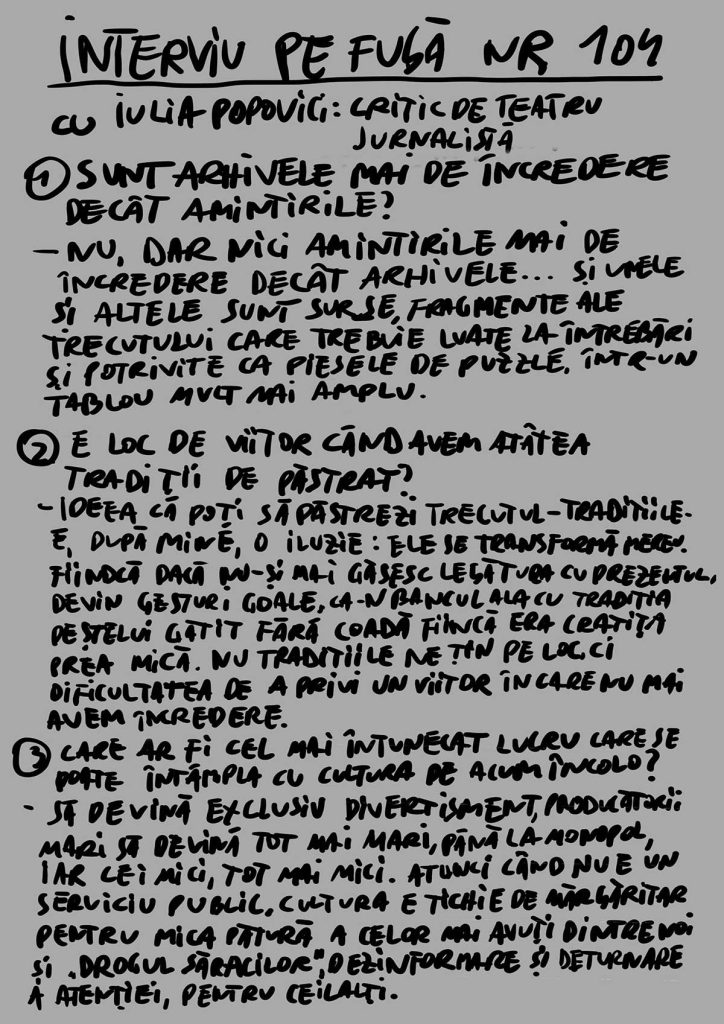 INTERVIU PE FUGĂ NR 104
CU IULIA POPOVICI: CRITIC DE TEATRU
JURNALISTĂ
1 SUNT ARHIVELE MAI DE ÎNCREDERE
DECÂT AMINTIRILE?
– NU, DAR NICI AMINTIRILE MAI DE
ÎNCREDERE DECÂT ARHIVELE... ȘI UNELE
ȘI ALTELE SUNT SURSE, FRAGMENTE ALE
TRECUTULUI CARE TREBUIE LUATE LA ÎNTREBĂRI
ȘI POTRIVITE CA PIESELE DE PUZZLE, ÎNTR-UN
TABLOU MULT MAI AMPLU.
2 E LOC DE VIITOR CÂND AVEM ATÂTEA
TRADIȚII DE PĂSTRAT?
- IDEEA CĂ POȚI SĂ PĂSTREZI TRECUTUL-TRADIȚIILE-
E, DUPĂ MINE, O ILUZIE: ELE SE TRANSFORMĂ MEREU.
FIINDCĂ DACĂ NU-ȘI MAI GĂSESC LEGĂTURA CU PREZENTUL,
DEVIN GESTURI GOALE, CA-N BANCUL ALA CU TRADIȚIA
PEȘTELUI GĂTIT FĂRĂ COADĂ FIINCĂ ERA CRATIȚA
PREA MICĂ. NU TRADIȚIILE NE ȚIN PE LOC, CI
DIFICULTATEA DE A PRIVI UN VIITOR ÎN CARE NU MAI
AVEM ÎNCREDERE.
3 CARE AR FI CEL MAI ÎNTUNECAT LUCRU CARE SE
POATE ÎNTÂMPLA CU CULTURA DE ACUM ÎNCOLO?
- SĂ DEVINĂ EXCLUSIV DIVERTISMENT, PRODUCĂTORII
MARI SĂ DEVINĂ TOT MAI MARI, PÂNĂ LA MONOPOL,
IAR CEI MICI, TOT MAI MICI. ATUNCI CÂND NU E UN
SERVICIU PUBLIC, CULTURA E TICHIE DE MĂRGĂRITAR
PENTRU MICA PĂTURĂ A CELOR MAI AVUȚI DINTRE NOI
ȘI „DROGUL SĂRACILOR", DEZINFORMARE ȘI DETURNARE
A ATENȚIEI, PENTRU CEILALȚI.